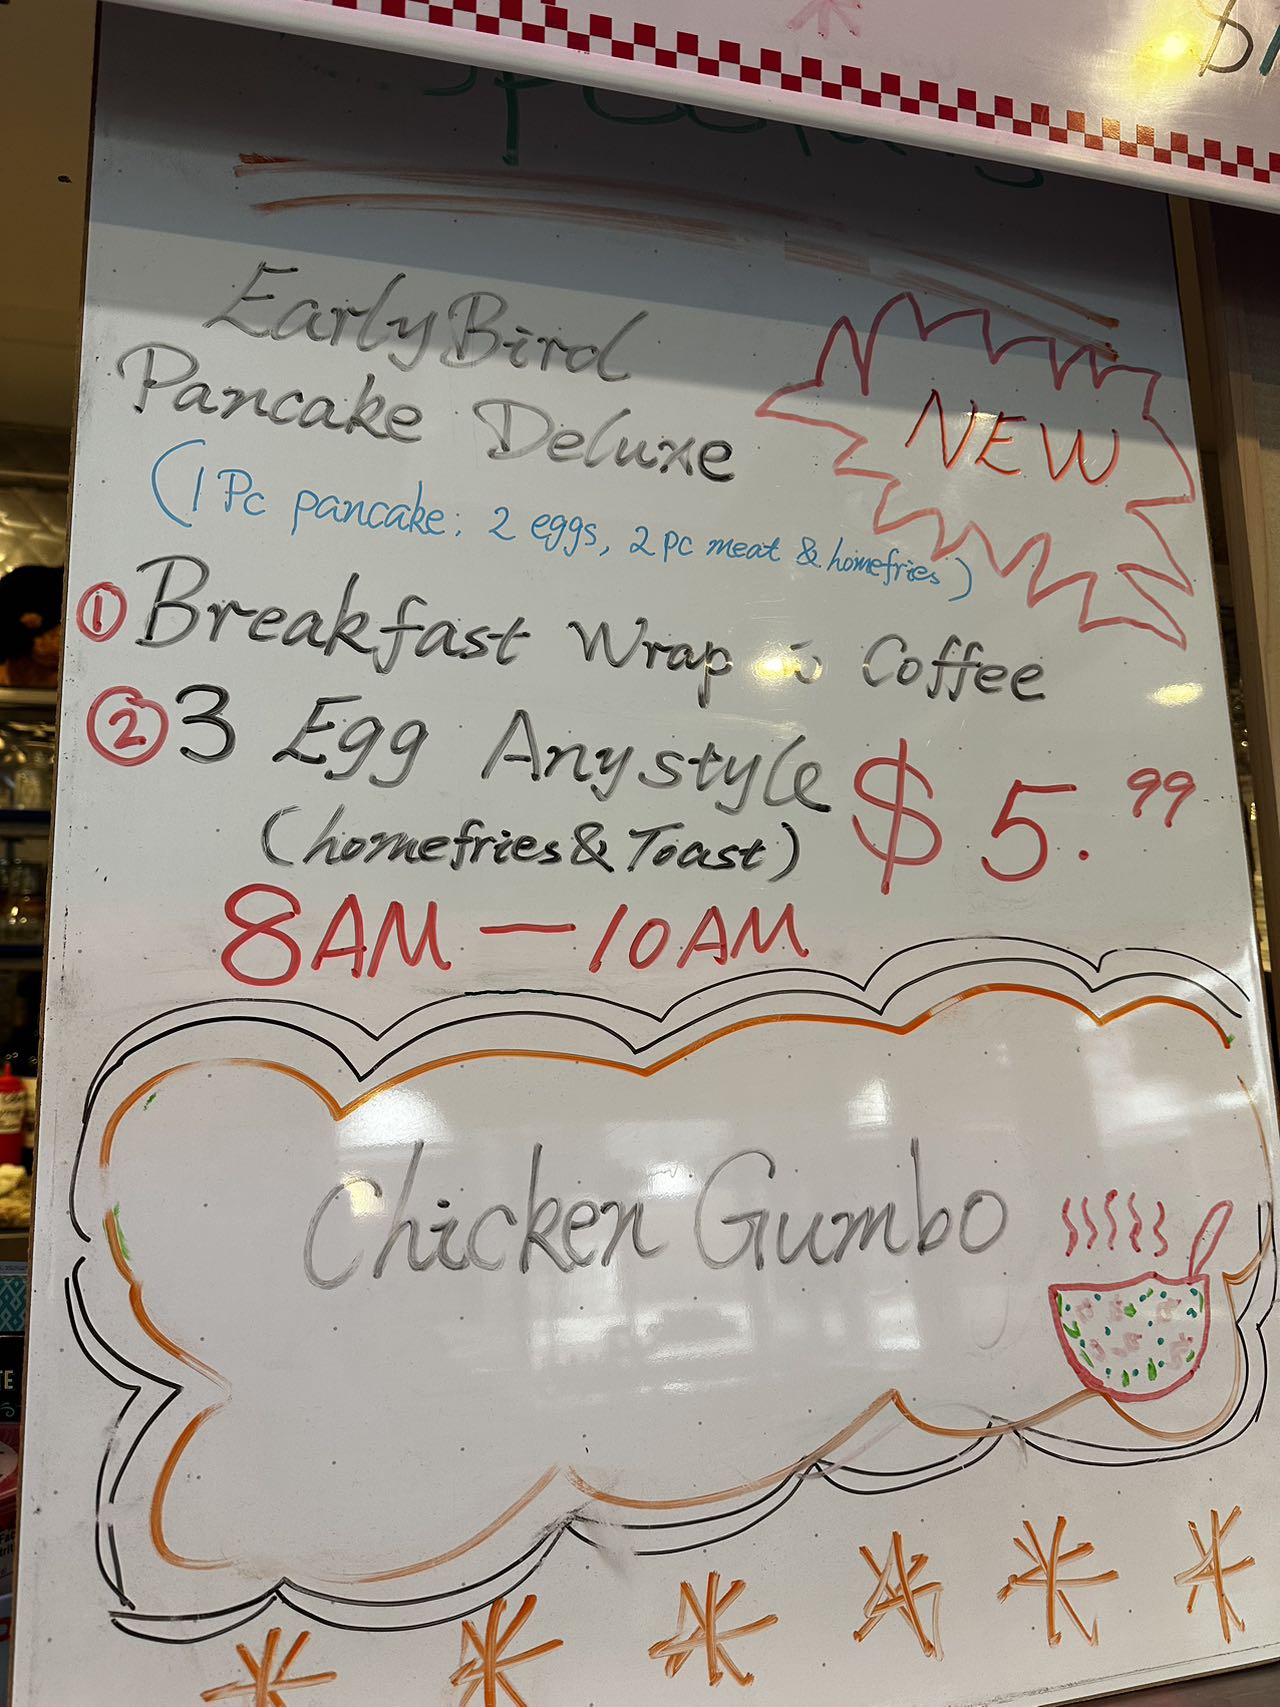 Specials
Early Bird
Pancake Deluxe
NEW
(1 Pc pancake, 2 eggs, 2 pc meat & homefries)
① Breakfast Wrap & Coffee
② 3 Egg Any style
$5.99
(homefries & Toast)
8AM — 10AM
Chicken Gumbo